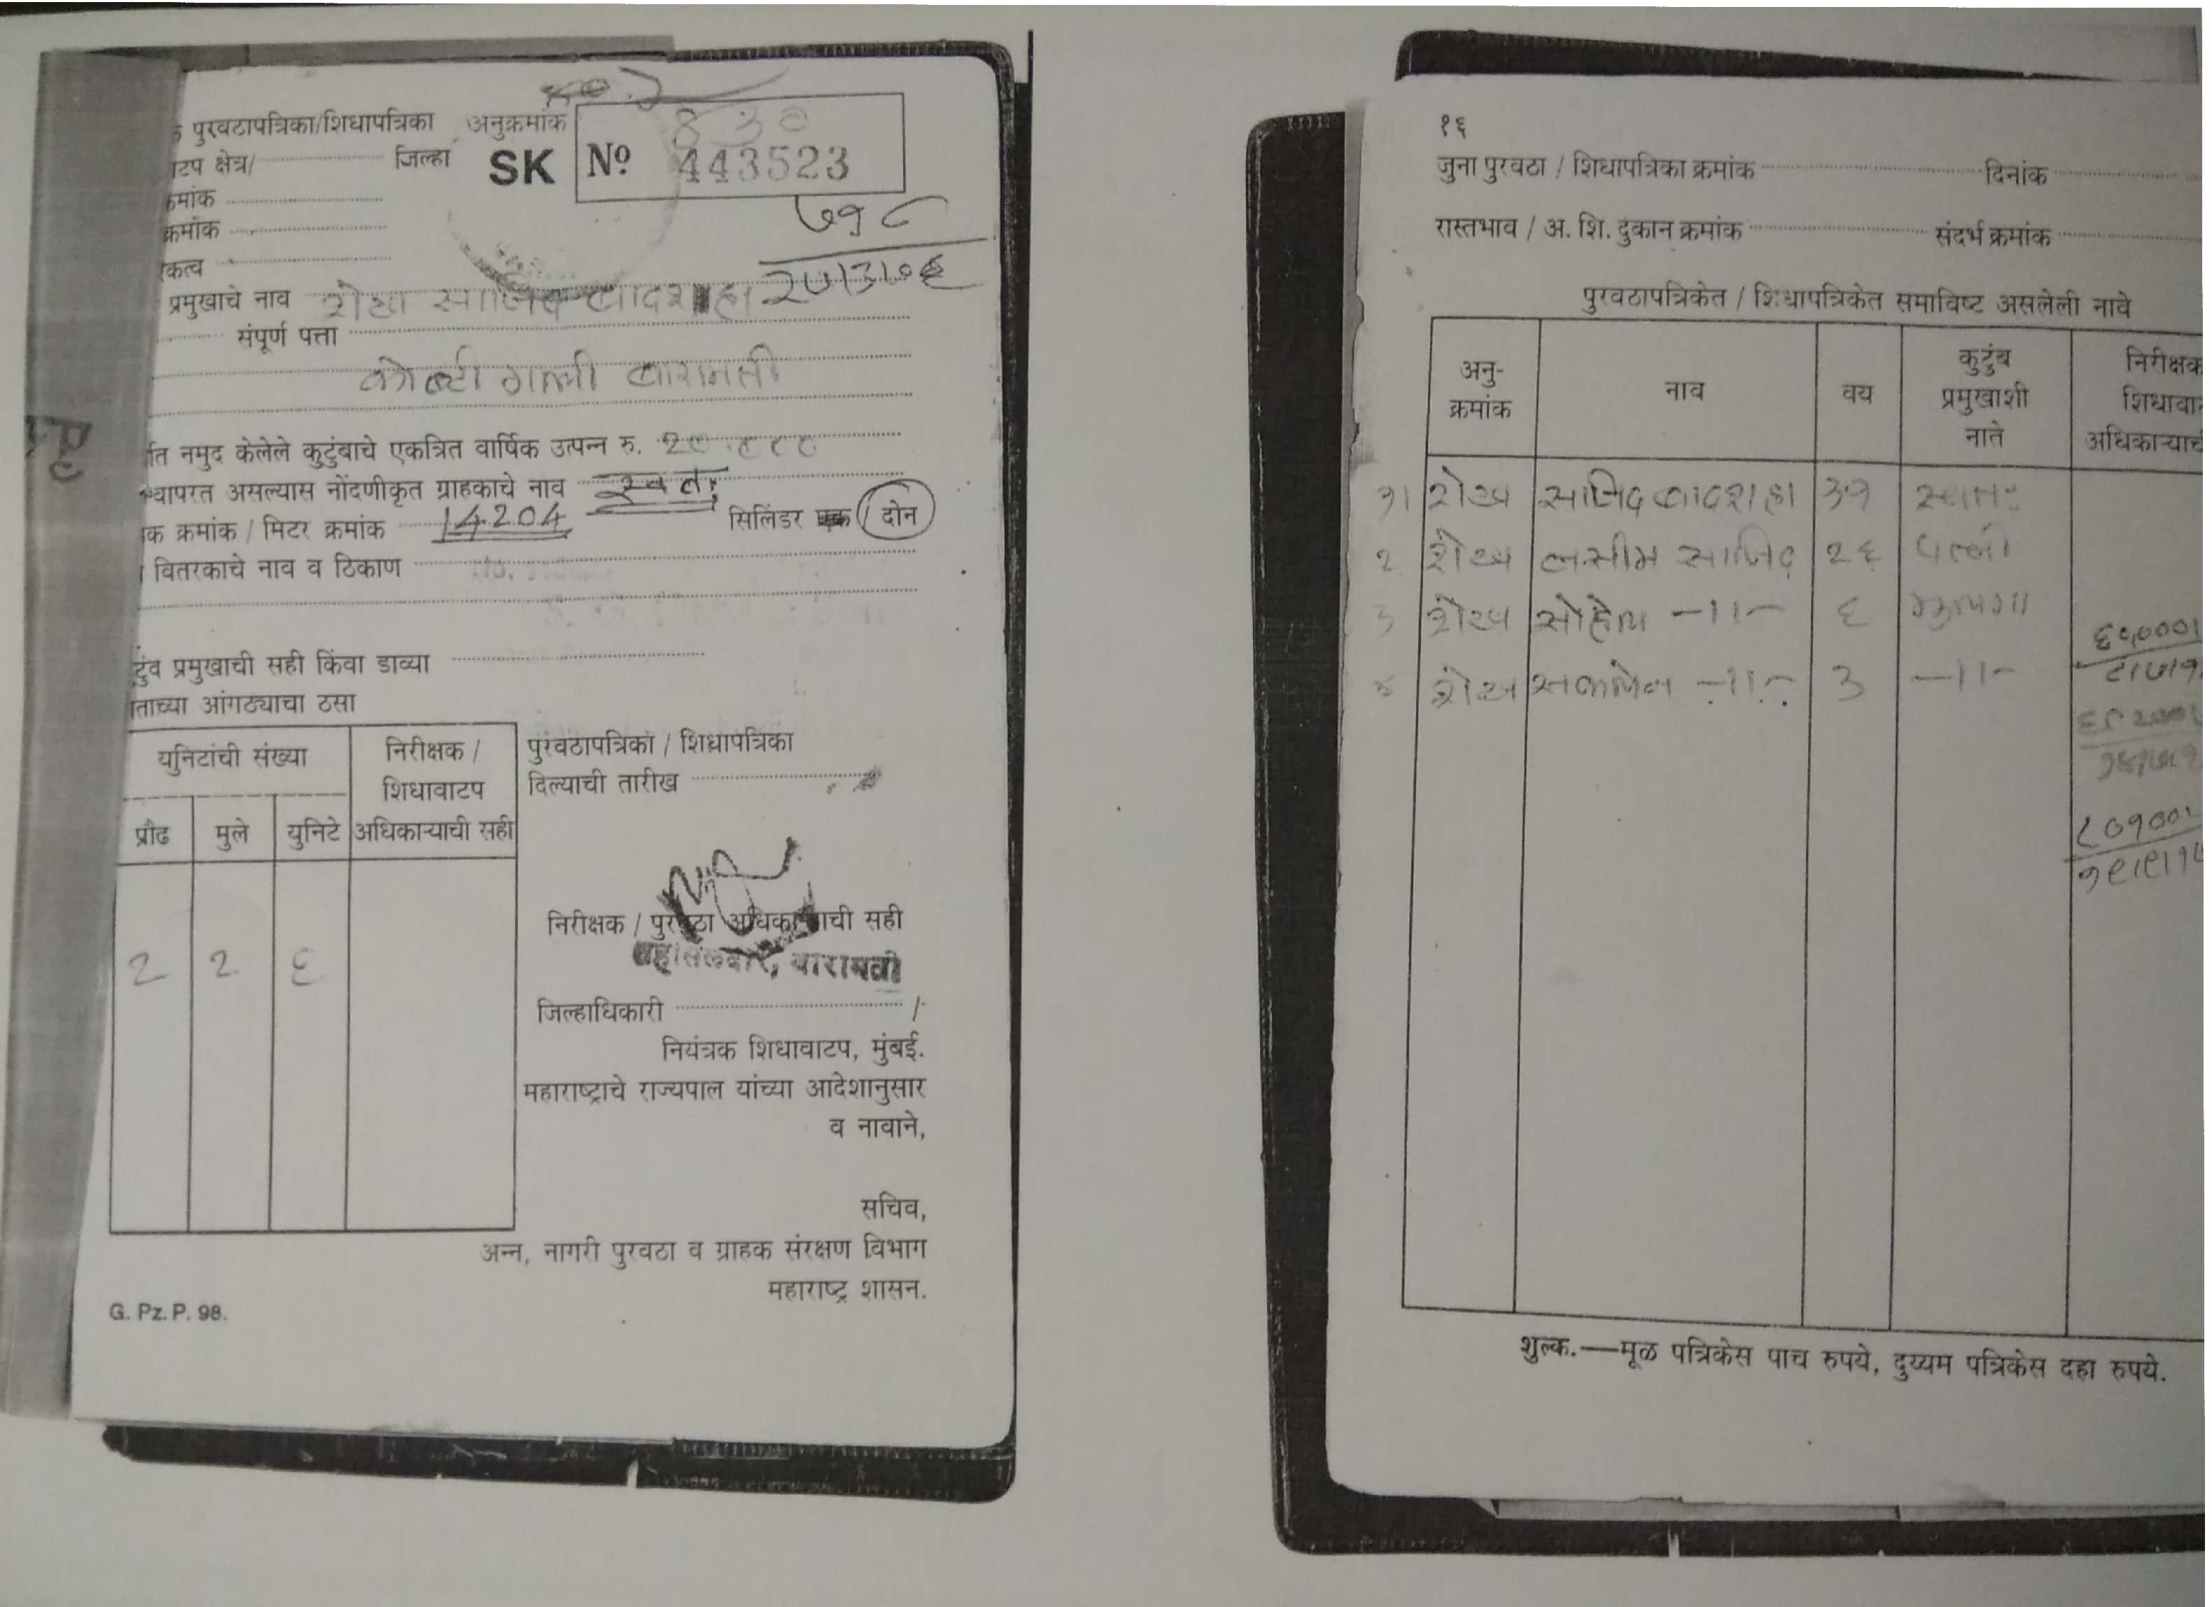 पुरवठापत्रिका/शिधापत्रिका अनुक्रमांक
८३०
क्षेत्र/ जिल्हा SK Nº 443523
क्रमांक
७१८
प्रमुखाचे नाव शेख साजिद बादशहा
संपूर्ण पत्ता
गल्ली बारामती
नमुद केलेले कुटुंबाचे एकत्रित वार्षिक उत्पन्न रु.
वापरत असल्यास नोंदणीकृत ग्राहकाचे नाव स्वतः
क्रमांक / मिटर क्रमांक 14204 सिलिंडर एक / दोन
वितरकाचे नाव व ठिकाण
प्रमुखाची सही किंवा डाव्या
आंगठ्याचा ठसा
युनिटांची संख्या
निरीक्षक / शिधावाटप अधिकाऱ्याची सही
प्रौढ मुले युनिटे
२ २ ६
पुरवठापत्रिका / शिधापत्रिका
दिल्याची तारीख
निरीक्षक / पुरवठा अधिकाऱ्याची सही
तहसिलदार, बारामती
जिल्हाधिकारी /
नियंत्रक शिधावाटप, मुंबई.
महाराष्ट्राचे राज्यपाल यांच्या आदेशानुसार
व नावाने,
सचिव,
अन्न, नागरी पुरवठा व ग्राहक संरक्षण विभाग
महाराष्ट्र शासन.
G. Pz. P. 98.
१६
जुना पुरवठा / शिधापत्रिका क्रमांक दिनांक
रास्तभाव / अ. शि. दुकान क्रमांक संदर्भ क्रमांक
पुरवठापत्रिकेत / शिधापत्रिकेत समाविष्ट असलेली नावे
अनु-क्रमांक नाव वय कुटुंब प्रमुखाशी नाते निरीक्षक
१। शेख साजिद बादशहा ३१ स्वतः
२ शेख साजिद २६ पत्नी
३ शेख सोहेल -॥- ६ मुलगा
४ शेख -॥- ३ -॥-
शुल्क.—मूळ पत्रिकेस पाच रुपये, दुय्यम पत्रिकेस दहा रुपये.